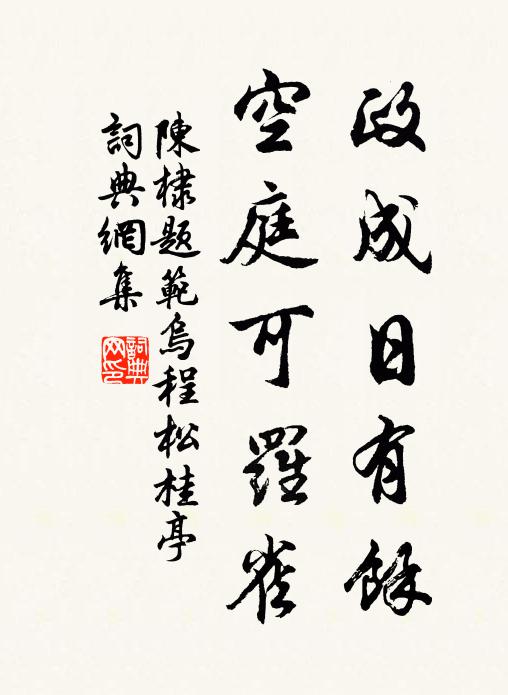 政成日有餘
空庭可羅雀
陳棣題範烏程松桂亭
詞典網集
詞典網印